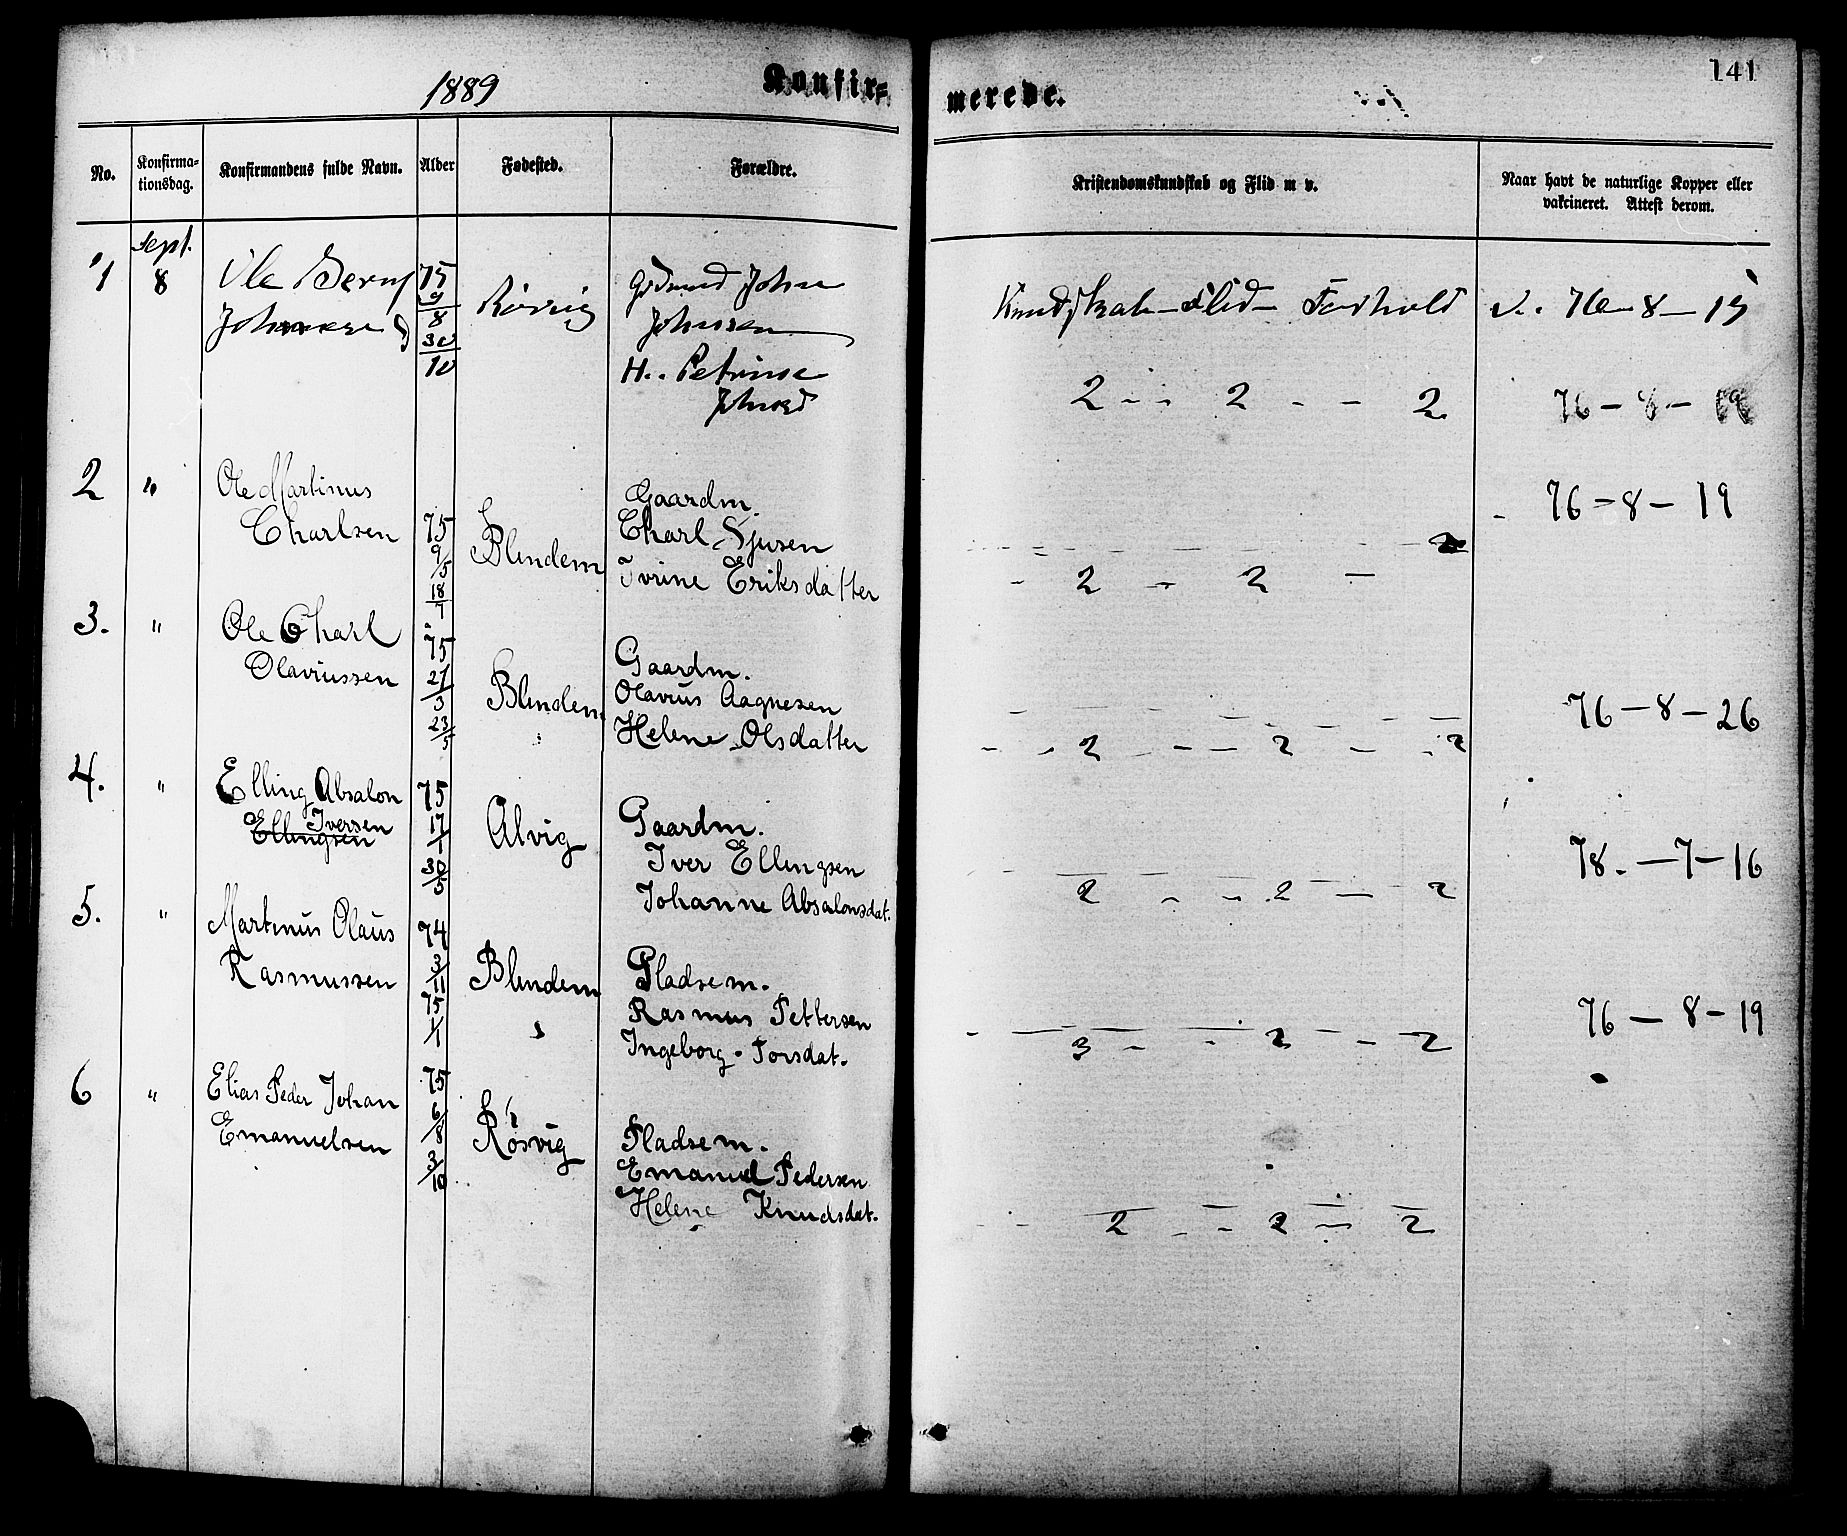 1889
Konfir=
merede.
141
No.
Konfirma=
tionsdag.
Konfirmandens fulde Navn.
Alder
Fødested.
Forældre.
Kristendomskundskab og Flid m v.
Naar havt de naturlige Kopper eller
vakcineret. Attest derom.
Sept.
1 8 Ole
75
9/8
30/10
Johnsen
H.. Petrine
Kundskab - Flid - Forhold
2 - - 2 - - 2
76 - 8 - 19
2 " Ole Martinus
Charlsen
75
9/5
18/7
Blindem
Gaardm.
Charl Sjursen
Ivrine Eriksdatter
- 2 - 2 -
76 - 8 - 19
3. " Ole Charl
Olaviussen
75
27/3
23/5
Blindem
Gaardm.
Olavius Aagnesen
Helene Olsdatter
- - 2 - - 2 - - 2
76 - 8 - 26
4. " Elling Absalon
Iversen
Ellingsen
75
17/1
30/5
Alvig
Gaardm.
Iver Ellingsen
Johanne Absalonsdat.
- 2 - - 2 - 2
78. - 7 - 16
5. " Martinus Olaus
Rasmussen
74
3/11
75
1/1
Blindem
Pladsem.
Rasmus Pettersen
Ingeborg Torsdat.
3 - - 2 - 2
76 - 8 - 19
6 " Elias Peder Johan
Emanuelsen
75
6/8
3/10
Røsvig
Pladsem.
Emanuel Pedersen
Helene Knudsdat.
- - 2 - - 2 - 2